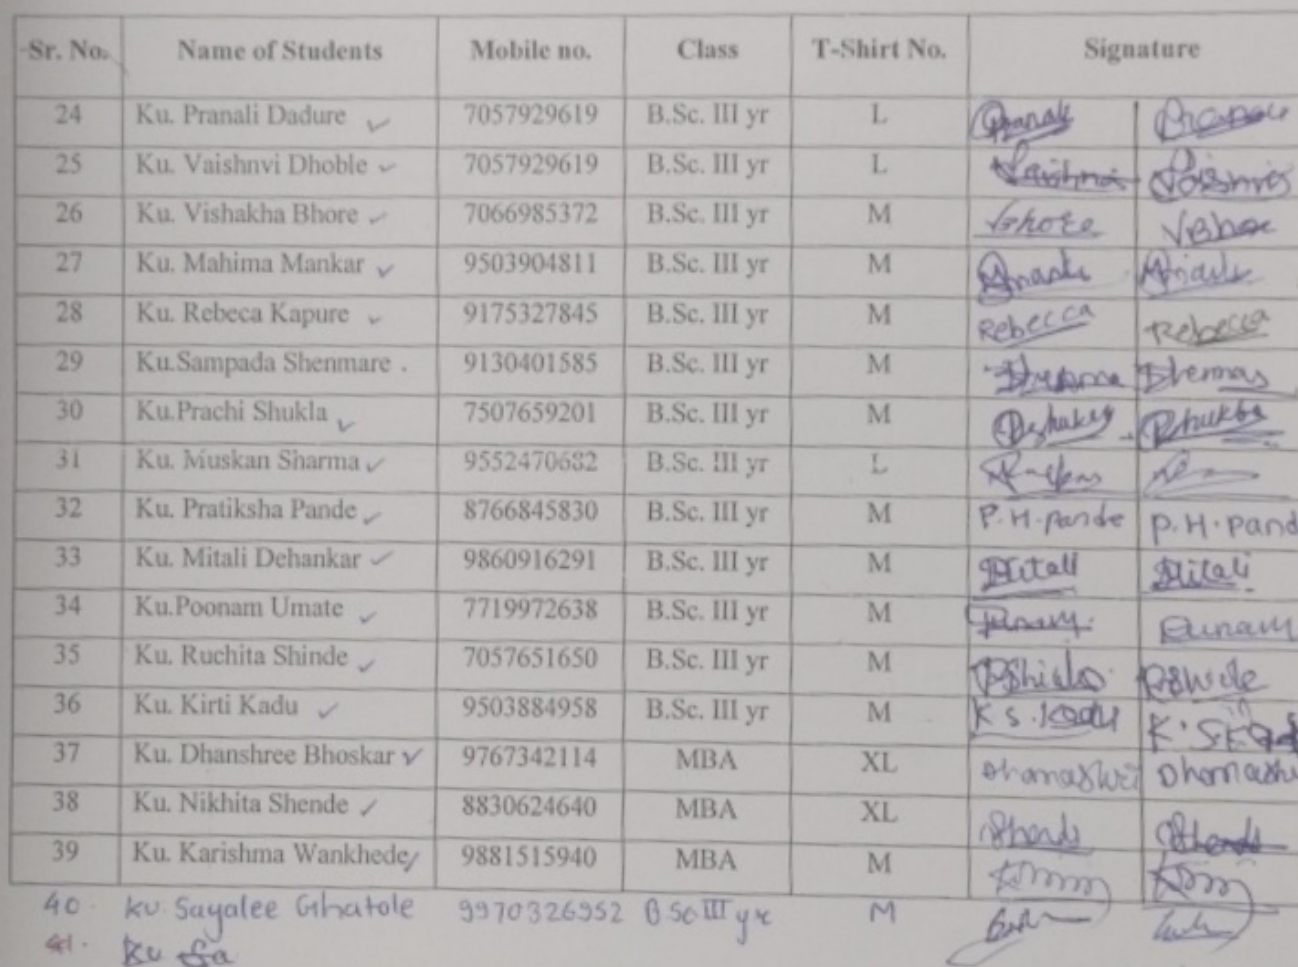 Sr. No. Name of Students Mobile no. Class T-Shirt No. Signature
24 Ku. Pranali Dadure 7057929619 B.Sc. III yr L Pranali
25 Ku. Vaishnvi Dhoble 7057929619 B.Sc. III yr L
26 Ku. Vishakha Bhore 7066985372 B.Sc. III yr M
27 Ku. Mahima Mankar 9503904811 B.Sc. III yr M
28 Ku. Rebeca Kapure 9175327845 B.Sc. III yr M Rebecca Rebecca
29 Ku.Sampada Shenmare . 9130401585 B.Sc. III yr M
30 Ku.Prachi Shukla 7507659201 B.Sc. III yr M
31 Ku. Muskan Sharma 9552470682 B.Sc. III yr L
32 Ku. Pratiksha Pande 8766845830 B.Sc. III yr M P.H.pande P.H.pand
33 Ku. Mitali Dehankar 9860916291 B.Sc. III yr M Mitali Mitali
34 Ku.Poonam Umate 7719972638 B.Sc. III yr M
35 Ku. Ruchita Shinde 7057651650 B.Sc. III yr M
36 Ku. Kirti Kadu 9503884958 B.Sc. III yr M K s.Kadu
37 Ku. Dhanshree Bhoskar 9767342114 MBA XL
38 Ku. Nikhita Shende 8830624640 MBA XL
39 Ku. Karishma Wankhede 9881515940 MBA M
40. Ku. Sayalee Ghatole 9970326952 B.Sc III yr M
41. Ku